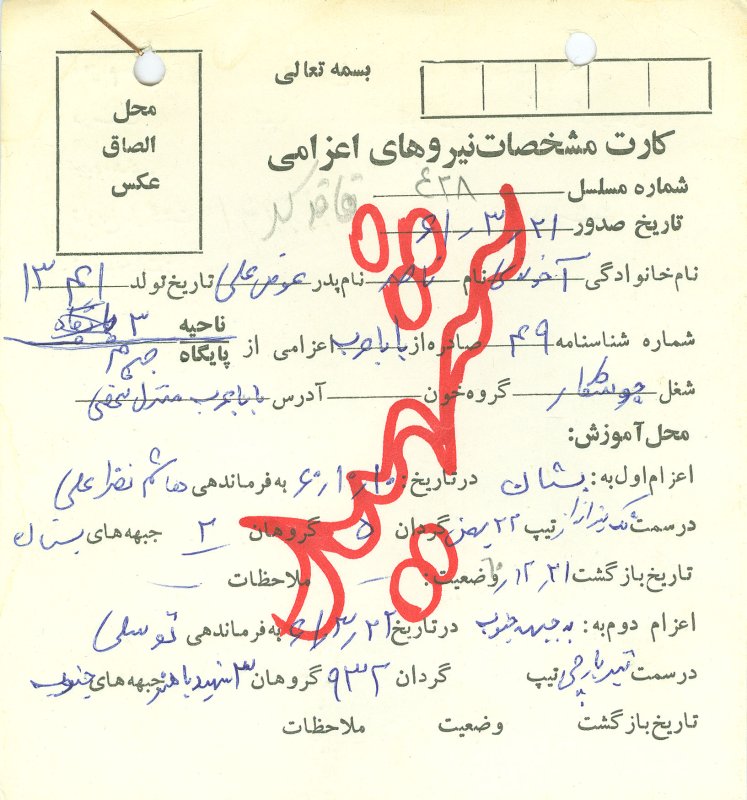 بسمه تعالی
محل
الصاق
عکس
کارت مشخصات نیروهای اعزامی
شماره مسلسل ٤٢٨
تاریخ صدور ۶۱٫۳٫۲۱
نام خانوادگی نام ناصر نام پدر عوض علی تاریخ تولد ۱۳۴۱
شماره شناسنامه ۴۹ صادره از باباعرب اعزامی از ناحیه ۳ پایگاه جهرم
شغل جوشکار گروه خون آدرس باباعرب منزل شخصی
محل آموزش:
اعزام اول به: بستان در تاریخ: ۶۰٫۱۰٫۱۰ به فرماندهی هاشم
در سمت تک تیرانداز تیپ ۲۲ بهمن گردان ۵ گروهان ۲ جبهه های بستان
تاریخ بازگشت ۶۰٫۱۲٫۲۱ وضعیت: ملاحظات
اعزام دوم به: به جبهه جنوب در تاریخ ۶۱٫۳٫۲۲ به فرماندهی توسلی
در سمت تیربارچی تیپ گردان ۹۳۲ گروهان ۳ شهید باهنر جبهه های جنوب
تاریخ بازگشت وضعیت ملاحظات
شهید